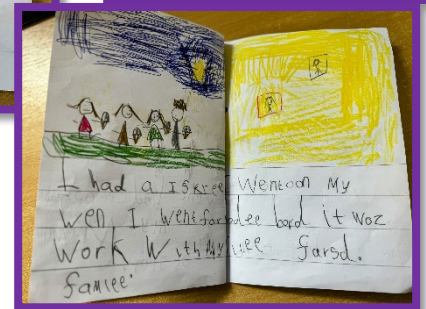 I had a Iskree
wen I went for a
Work With My
famlee.
Wentoon My
lee bord it woz
lee farsd.